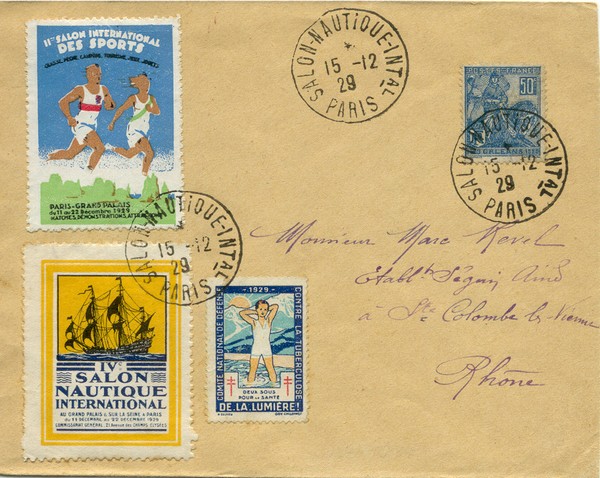 IIme SALON INTERNATIONAL
DES SPORTS
CHASSE, PÊCHE, CAMPING, TOURISME, JEUX, JOUETS
PARIS-GRAND PALAIS
du 11 au 22 Décembre 1929
MATCHES, DÉMONSTRATIONS, ATTRACTIONS
SALON-NAUTIQUE-INTAL
15 -12
29
PARIS
50c
POSTES-FRANCE
ORLÉANS
SALON-NAUTIQUE-INTAL
15 -12
29
PARIS
SALON-NAUTIQUE-INTAL
15 -12
29
PARIS
Monsieur Marc
Etablts Seguin Ainé
à Ste Colombe les Vienne
Rhône
IVe
SALON
NAUTIQUE
INTERNATIONAL
AU GRAND PALAIS & SUR LA SEINE A PARIS
du 11 DÉCEMBRE au 22 DÉCEMBRE 1929
COMMISSARIAT GÉNÉRAL: Avenue des CHAMPS ELYSÉES
-1929-
COMITÉ NATIONAL DE DÉFENSE
CONTRE LA TUBERCULOSE
DEUX SOUS
POUR LA SANTÉ
DE LA LUMIÈRE!